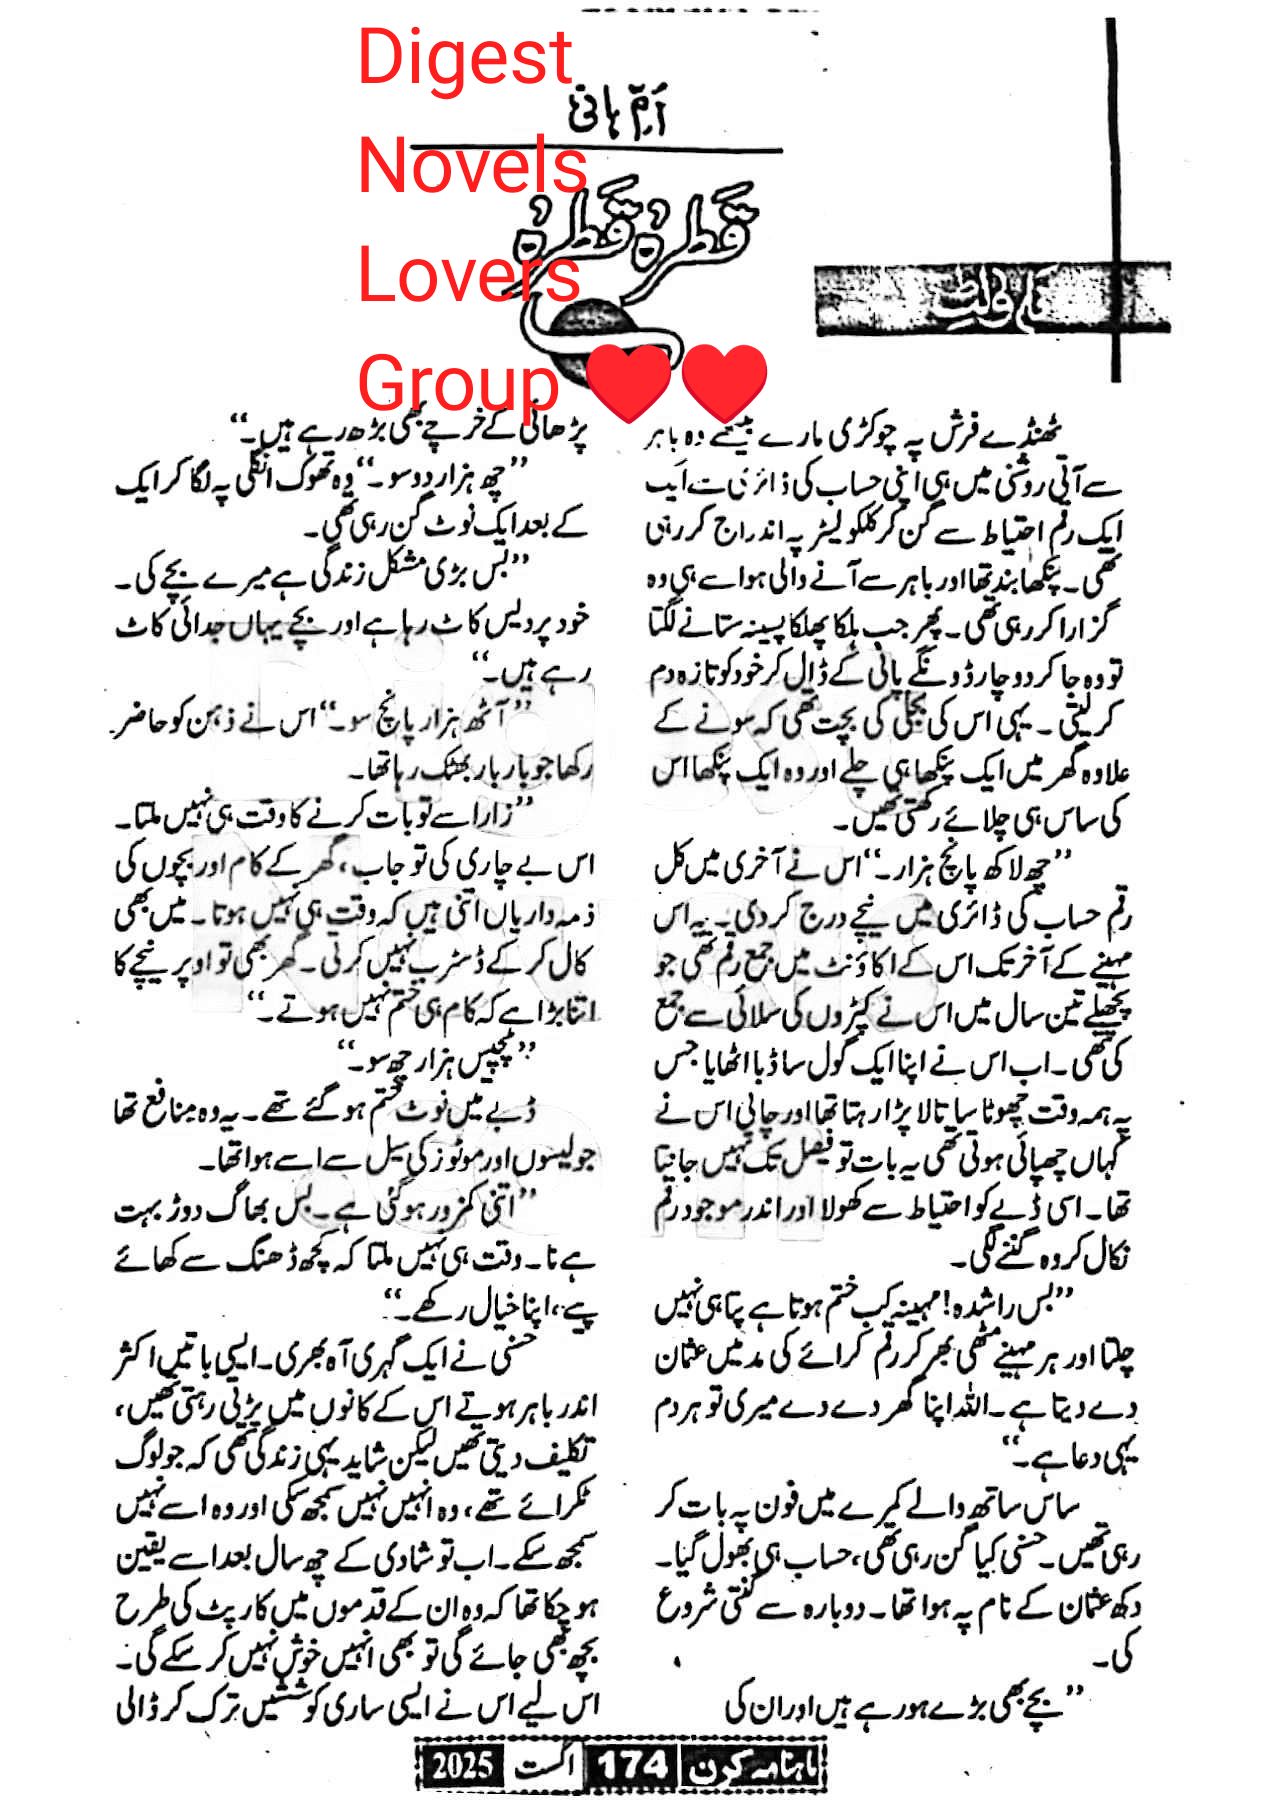 Digest
Novels
Lovers
Group
اُمِّ ہانی
قطرہ قطرہ
ٹھنڈے فرش پہ چوکڑی مارے بیٹھے وہ باہر
سے آتی روشنی میں ہی اپنی حساب کی ڈائری سے ایک
ایک رقم احتیاط سے گن کر کلکولیٹر پہ اندراج کر رہی
تھی۔ پنکھا بند تھا اور باہر سے آنے والی ہوا سے ہی وہ
گزارا کر رہی تھی۔ پھر جب ہلکا پھلکا پسینہ ستانے لگتا
تو وہ جا کر دو چار ڈونگے پانی کے ڈال کر خود کو تازہ دم
کر لیتی۔ یہی اس کی بجلی کی بچت تھی کہ سونے کے
علاوہ گھر میں ایک پنکھا ہی چلے اور وہ ایک پنکھا اس
کی ساس ہی چلائے رکھتی تھیں۔
”چھ لاکھ پانچ ہزار۔“ اس نے آخری میں کل
رقم حساب کی ڈائری میں نیچے درج کر دی۔ یہ اس
مہینے کے آخر تک اس کے اکاؤنٹ میں جمع رقم تھی جو
پچھلے تین سال میں اس نے کپڑوں کی سلائی سے جمع
کی تھی۔ اب اس نے اپنا ایک گول سا ڈبا اٹھایا جس
پہ ہمہ وقت چھوٹا سا تالا پڑا رہتا تھا اور چابی اس نے
کہاں چھپائی ہوتی تھی یہ بات تو فیصل تک نہیں جانتا
تھا۔ اسی ڈبے کو احتیاط سے کھولا اور اندر موجود رقم
نکال کر وہ گننے لگی۔
”بس راشدہ! مہینہ کب ختم ہوتا ہے پتا ہی نہیں
چلتا اور ہر مہینے مٹھی بھر کر رقم کرائے کی مد میں عثمان
دے دیتا ہے۔ اللہ اپنا گھر دے دے میری تو ہر دم
یہی دعا ہے۔“
ساس ساتھ والے کمرے میں فون پہ بات کر
رہی تھیں۔ حسنی کیا گن رہی تھی، حساب ہی بھول گیا۔
دکھ عثمان کے نام پہ ہوا تھا۔ دوبارہ سے گنتی شروع
کی۔
”بچے بھی بڑے ہو رہے ہیں اور ان کی
پڑھائی کے خرچے بھی بڑھ رہے ہیں۔“
”چھ ہزار دو سو۔“ وہ تھوک انگلی پہ لگا کر ایک
کے بعد ایک نوٹ گن رہی تھی۔
”بس بڑی مشکل زندگی ہے میرے بچے کی۔
خود پردیس کاٹ رہا ہے اور بچے یہاں جدائی کاٹ
رہے ہیں۔“
”آٹھ ہزار پانچ سو۔“ اس نے ذہن کو حاضر
رکھا جو بار بار بھٹک رہا تھا۔
”زارا سے تو بات کرنے کا وقت ہی نہیں ملتا۔
اس بے چاری کی تو جاب، گھر کے کام اور بچوں کی
ذمہ داریاں اتنی ہیں کہ وقت ہی نہیں ہوتا۔ میں بھی
کال کر کے ڈسٹرب نہیں کرتی۔ گھر بھی تو اوپر نیچے کا
اتنا بڑا ہے کہ کام ہی ختم نہیں ہوتے۔“
”پچیس ہزار چھ سو۔“
ڈبے میں نوٹ ختم ہو گئے تھے۔ یہ وہ منافع تھا
جو لیسوں اور موٹوز کی سیل سے اسے ہوا تھا۔
”اتنی کمزور ہو گئی ہے۔ بس بھاگ دوڑ بہت
ہے نا۔ وقت ہی نہیں ملتا کہ کچھ ڈھنگ سے کھائے
پیے، اپنا خیال رکھے۔“
حسنی نے ایک گہری آہ بھری۔ ایسی باتیں اکثر
اندر باہر ہوتے اس کے کانوں میں پڑتی رہتی تھیں،
تکلیف دیتی تھیں لیکن شاید یہی زندگی تھی کہ جو لوگ
ٹکرائے تھے، وہ انہیں نہیں سمجھ سکی اور وہ اسے نہیں
سمجھ سکے۔ اب تو شادی کے چھ سال بعد اسے یقین
ہو چکا تھا کہ وہ ان کے قدموں میں کارپٹ کی طرح
بچھ بھی جائے گی تو بھی انہیں خوش نہیں کر سکے گی۔
اس لیے اس نے ایسی ساری کوششیں ترک کر ڈالی
ماہنامہ کرن 174 اگست 2025